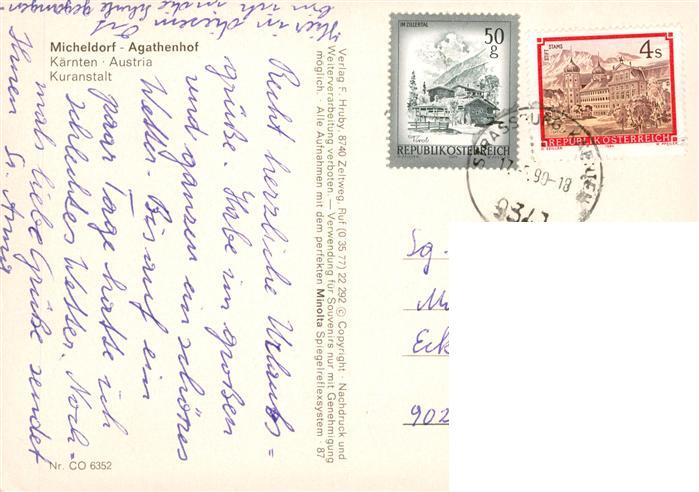 Micheldorf - Agathenhof
Kärnten · Austria
Kuranstalt
Recht herzliche Urlaubs=
grüße. Habe im großen
und ganzen ein schönes
Wetter. Bis auf ein
paar Tage hatte ich
schlechtes Wetter. Noch-
mals liebe Grüße sendet
Ihnen Sr. Anna
Hier in diesem Ort
bin ich in die Schule gegangen
Nr. CO 6352
Verlag F. Hruby, 8740 Zeltweg, Ruf (0 35 77) 22 292 © Copyright · Nachdruck und
Weiterverarbeitung verboten. — Verwendung für Souvenirs nur mit Genehmigung
möglich. · Alle Aufnahmen mit dem perfekten Minolta Spiegelreflexsystem · 87
IM ZILLERTAL
50
g
Tirol
REPUBLIK ÖSTERREICH
STIFT STAMS
4 s
REPUBLIK ÖSTERREICH
STRASSBURG, KÄRNTEN
90-18
9341
Sg.
Eck
902